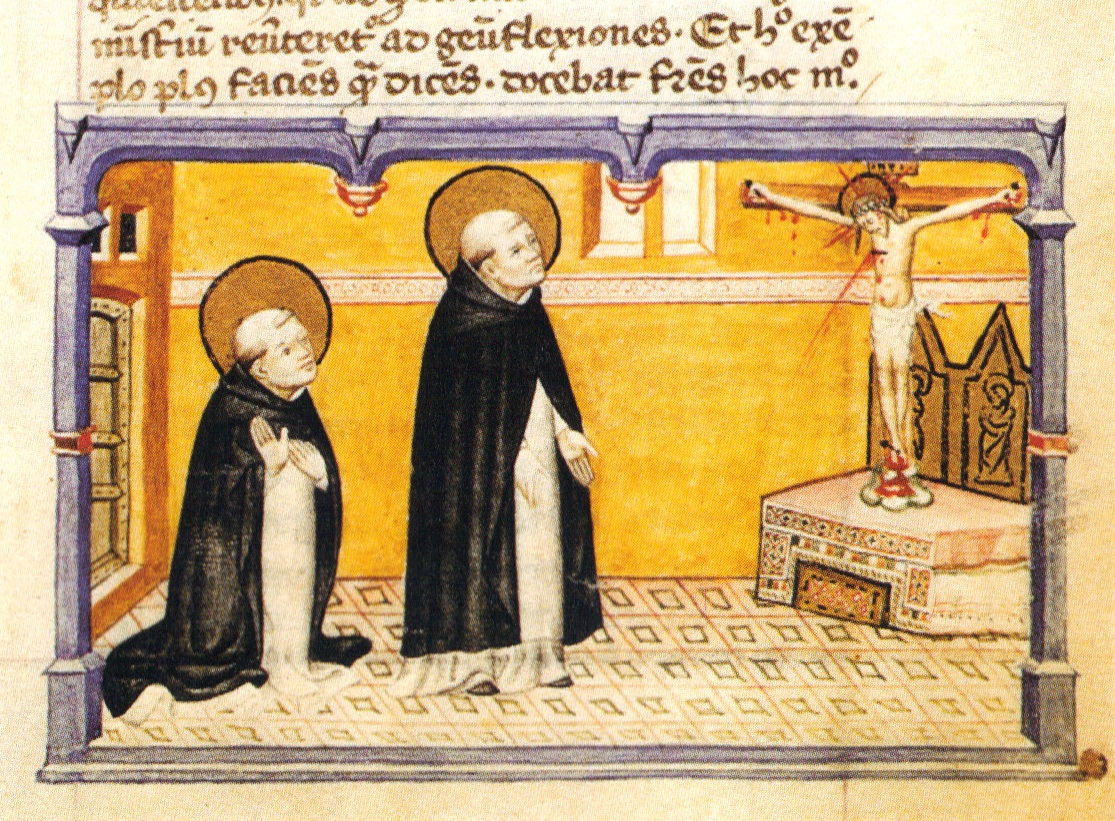 mīstiū reūteret᷒ ad geūflexiones · Et hº exē
plo plꝯ faciēs q̄ dicēs · docebat frēs hoc mº.